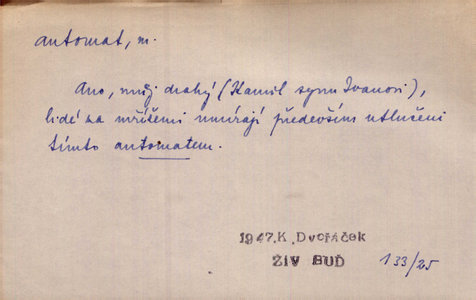 automat, m.
Ano, můj drahý (Kamil synu Ivanovi),
lidé za mřížemi umírají především utlučeni
tímto automatem.
1947.K. Dvořáček
ŽIV BUĎ
133/25